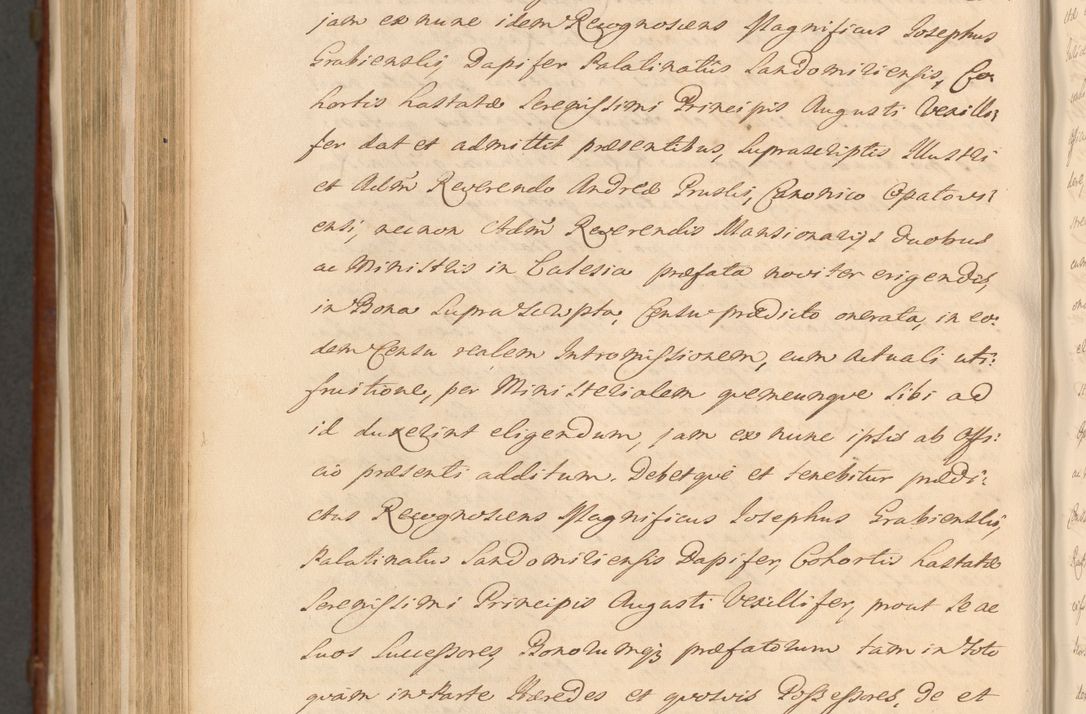 jam ex nunc idem Recognoscens Magnificus Josephus
Grabienski, Dapifer Palatinatus Sandomiriensis, Co-
hortis hastatæ Serenissimi Principis Augusti Vexilli:
fer dat et admittit præsentibus, Suprascriptis Illustri
et Adm̃ Reverendo Andreæ Pruski, Canonico Opatovi:
ensi, necnon Adm̃ Reverendis Mansionarijs duobus
ac Ministris in Ecclesia præfata noviter erigendis,
in Bona Suprascripta, Censu prædicto onerata, in eo:
dem Censu realem Intromissionem, cum actuali uti:
fruitione, per Ministerialem quemcunque sibi ad
id duxerint eligendum, jam ex nunc ipsis ab Offi:
cio præsenti additum. Debetque et tenebitur prædi:
ctus Recognoscens Magnificus Josephus Grabienski,
Palatinatus Sandomiriensis Dapifer, Cohortis hastatæ
Serenissimi Principis Augusti Vexillifer, prout se ac
suos Successores, Bonorumqȝ præfatorum tam in toto
quam in Parte Hæredes et quosvis Possessores, de et